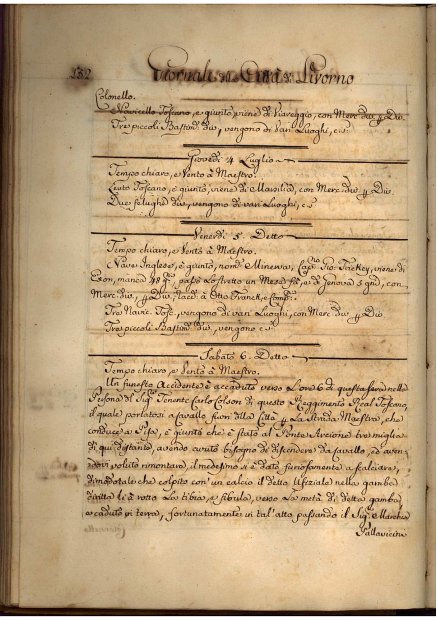 182 Giornali della Città di Livorno
Colonello.
Navicello Toscano, è giunto, viene di Viareggio, con Merc. div. p. Div.
Tre piccoli Bastim. div. vengono di vari Luoghi, c. s.
Giovedì 4 Luglio
Tempo chiaro, e Vento à Maestro.
Leuto Toscano, è giunto, viene di Marsilia, con Merc. div. p. Div.
Due felughe div. vengono di vari Luoghi, c. s.
Venerdì 5. Detto
Tempo chiaro, e Vento à Maestro.
Nave Inglese, è giunto, nom. Minerva, Cap.no Gio. viene di
manca 48 g. passò Lo stretto un Mese fà, e di Genova 3 gni. con
Merc. div. p. Div. racc. à Otto Franck, e Comp.
Tre Navic. Tosc. vengono di vari Luoghi, con Merc. div. p. Div.
Tre piccoli Bastim. div. vengono c. s.
Sabato 6. Detto
Tempo chiaro, e Vento à Maestro.
Un funesto Accidente è accaduto verso L'ore 6 di questa sera nella
Persona del Sig. Tenente Carlo Colson di questo Reggimento Real Toscano,
il quale portatosi a Cavallo fuori della Città p. La Strada Maestra, che
conduce a Pisa, e giunto che è stato al Ponte Arcione tre miglia
di qui distante, avendo avuto bisogno di discendere da Cavallo, ed aven-
dovi voluto rimontare, il medesimo si è dato furiosamente a scalciare,
dimodotale che colpito con un calcio il detto Ufiziale nella gamba
diritta le à rotto La tibia, e fibula, verso La metà di detta gamba,
e caduto in terra, fortunatamente in tal'atto passando il Sig. Marchese
Pallavicini